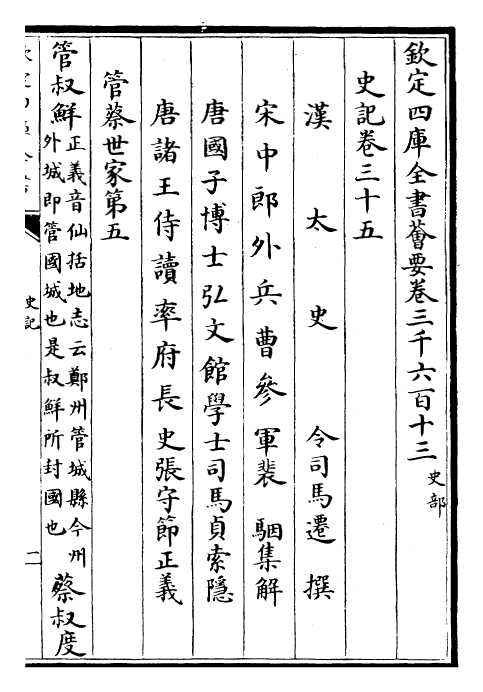 欽定四庫全書薈要卷三千六百十三
史部
史記卷三十五
漢太史令司馬遷撰
宋中郎外兵曹參軍裴駰集解
唐國子博士弘文館學士司馬貞索隱
唐諸王侍讀率府長史張守節正義
管蔡世家第五
管叔鮮
正義音仙括地志云鄭州管城縣今州
外城即管國城也是叔鮮所封國也
蔡叔度
史記